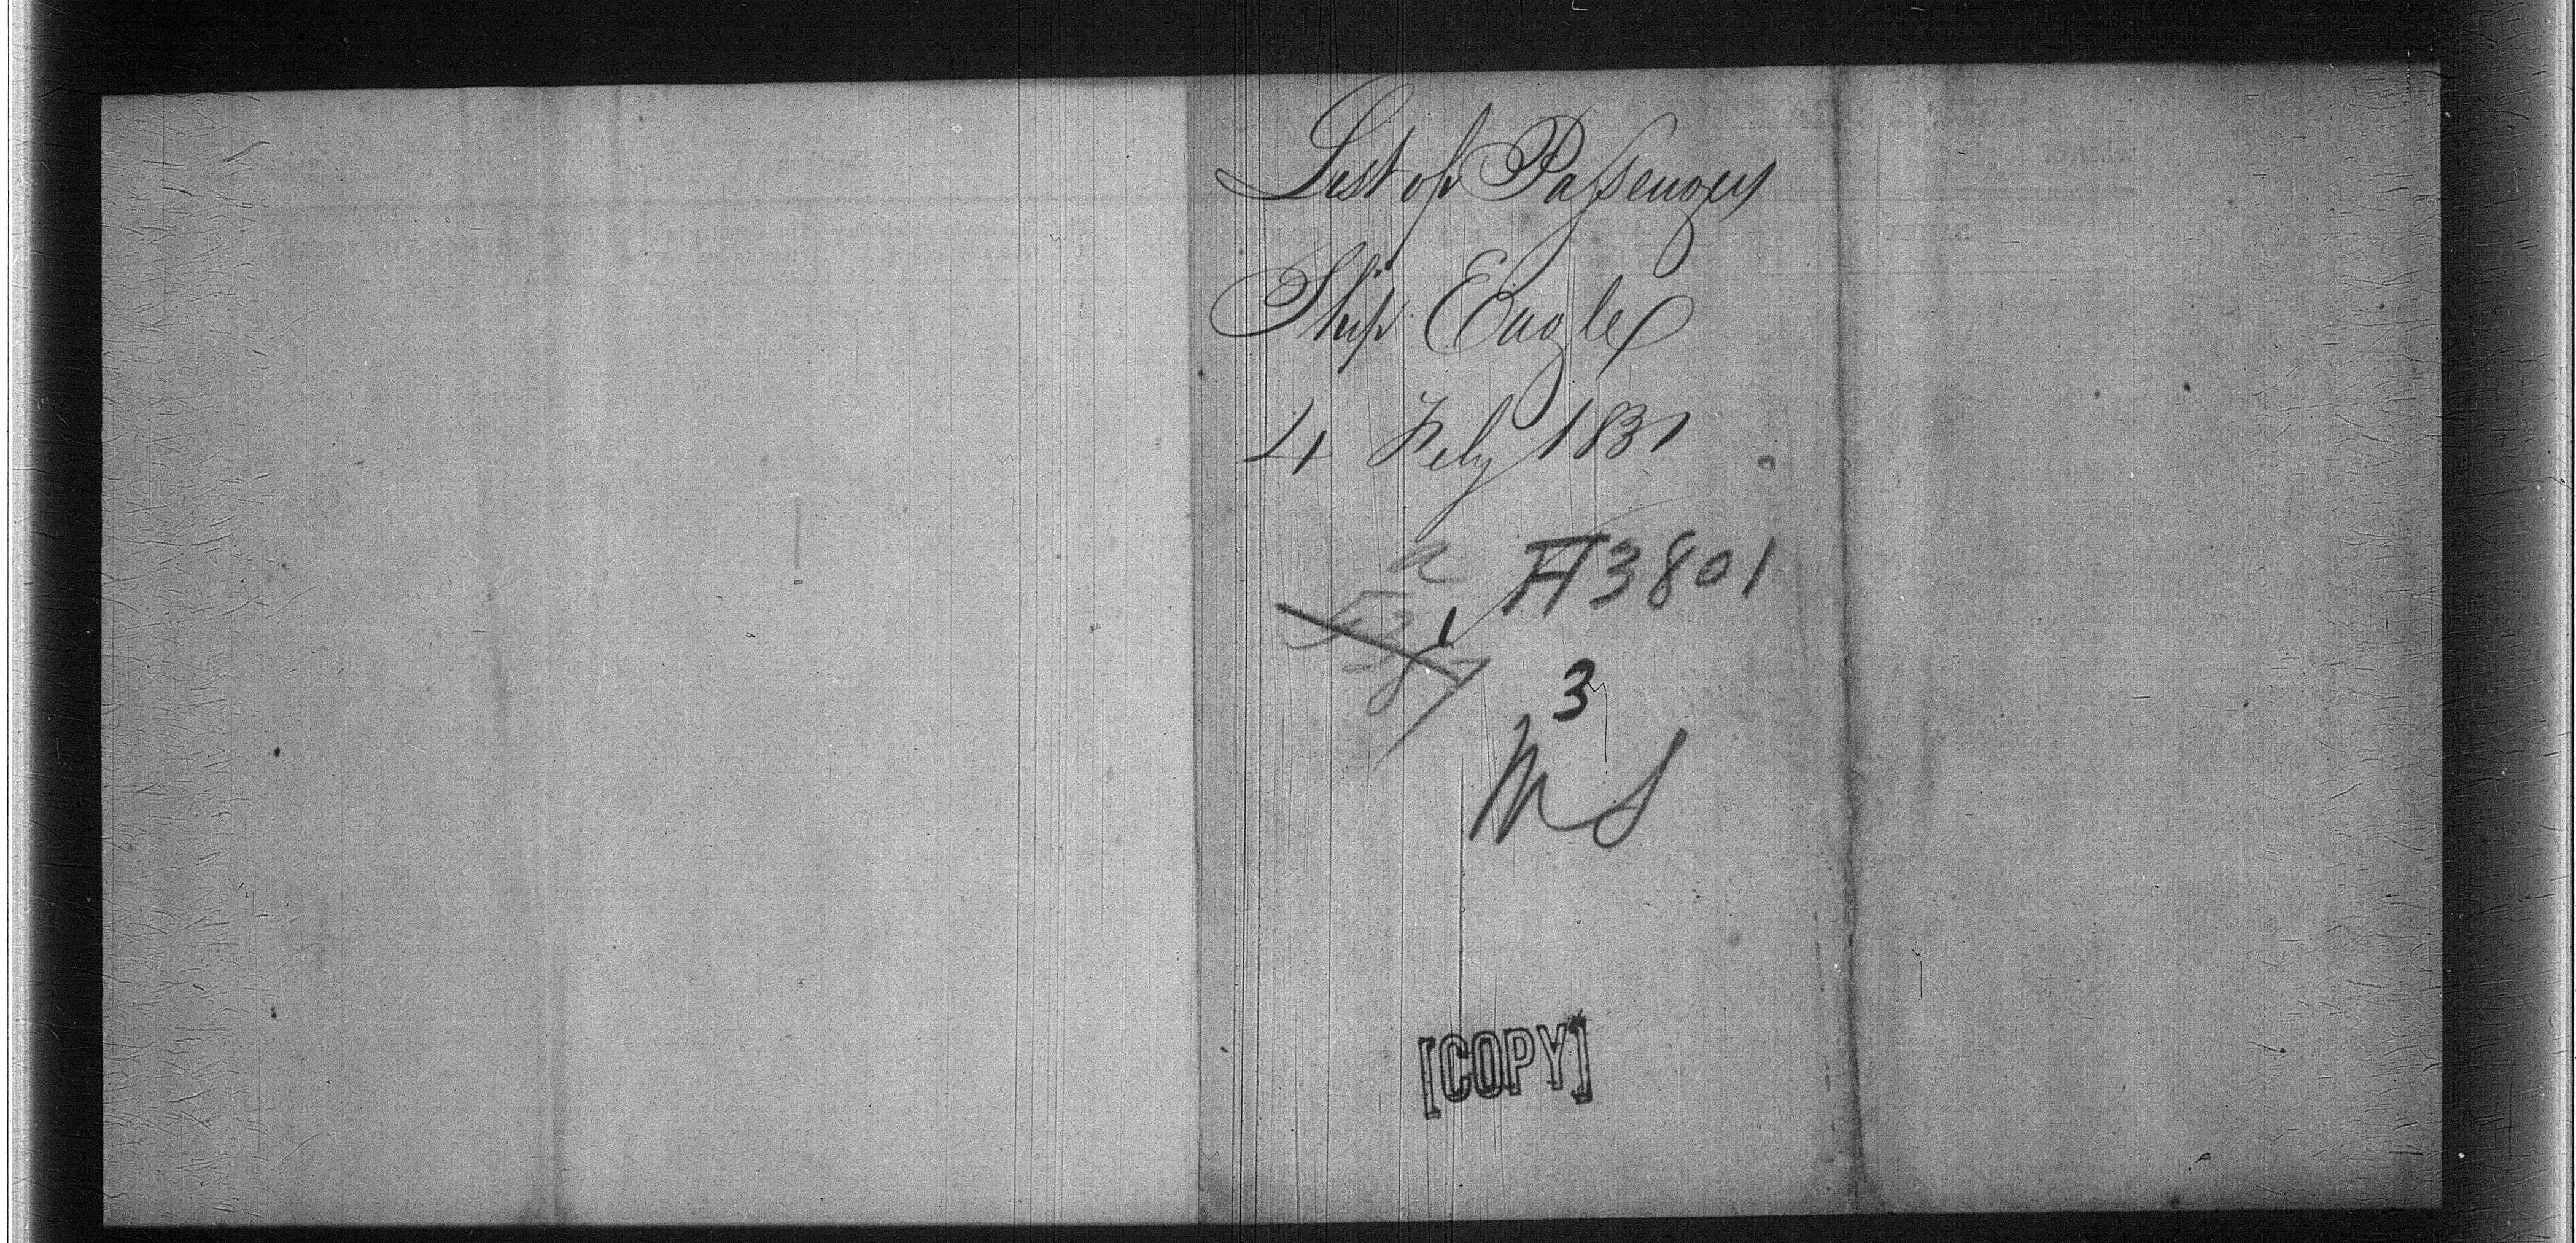 List of Passengers
Ship Eagle
4 Feby 1831
a F3801
1
3
MS
[COPY]